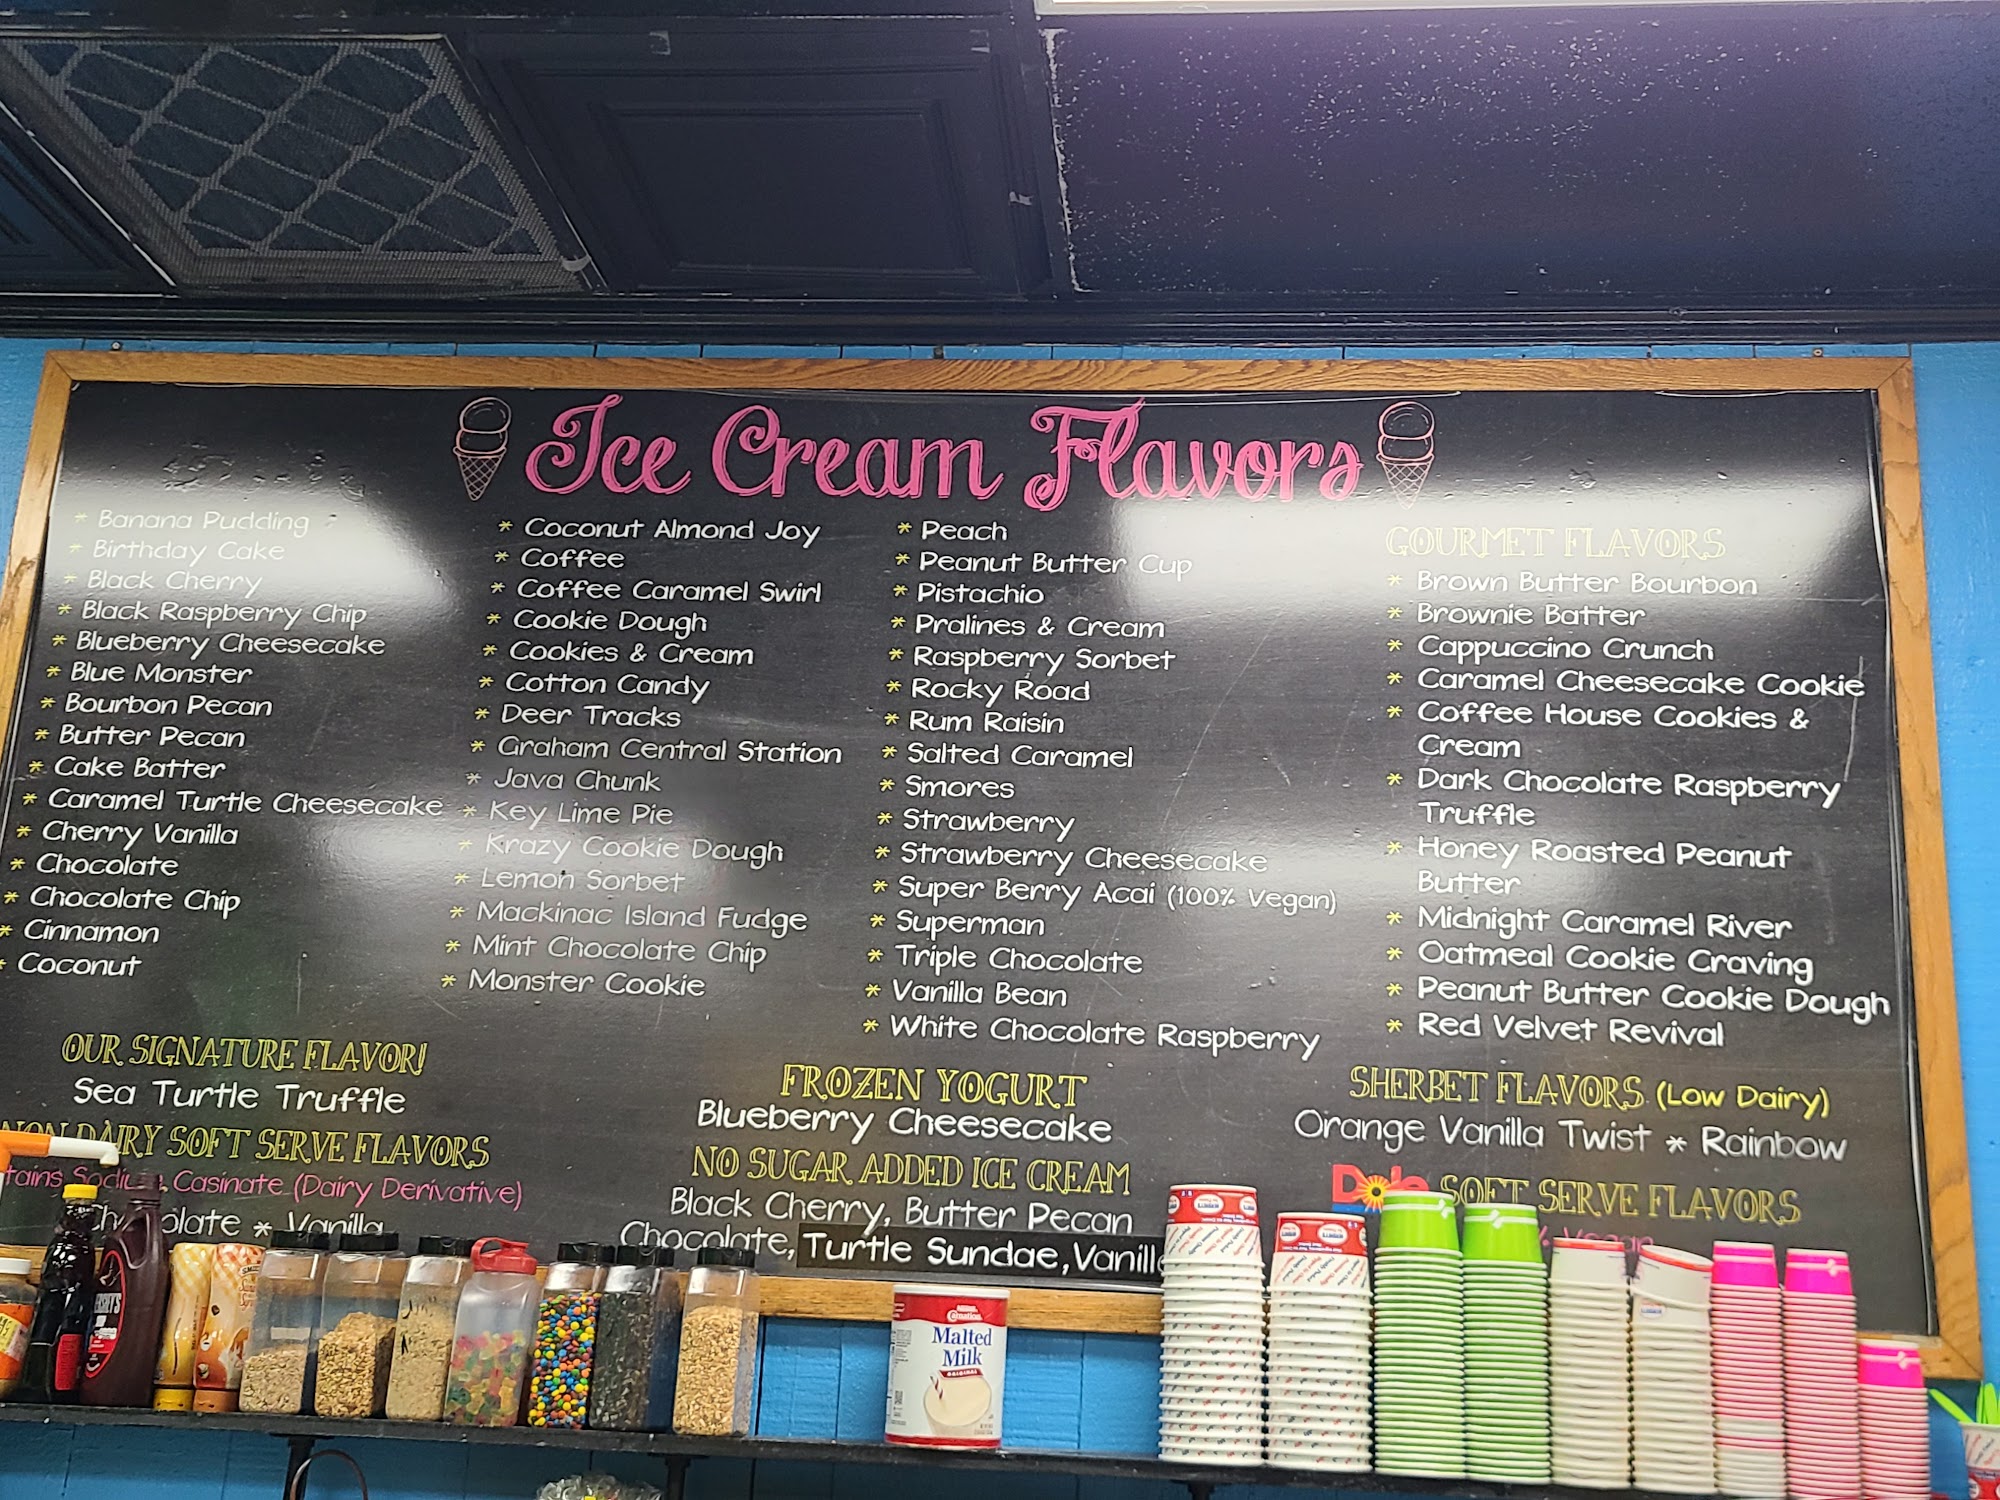 Ice Cream Flavors
* Banana Pudding
* Birthday Cake
* Black Cherry
* Black Raspberry Chip
* Blueberry Cheesecake
* Blue Monster
* Bourbon Pecan
* Butter Pecan
* Cake Batter
* Caramel Turtle Cheesecake
* Cherry Vanilla
* Chocolate
* Chocolate Chip
* Cinnamon
* Coconut
* Coconut Almond Joy
* Coffee
* Coffee Caramel Swirl
* Cookie Dough
* Cookies & Cream
* Cotton Candy
* Deer Tracks
* Graham Central Station
* Java Chunk
* Key Lime Pie
* Krazy Cookie Dough
* Lemon Sorbet
* Mackinac Island Fudge
* Mint Chocolate Chip
* Monster Cookie
* Peach
* Peanut Butter Cup
* Pistachio
* Pralines & Cream
* Raspberry Sorbet
* Rocky Road
* Rum Raisin
* Salted Caramel
* Smores
* Strawberry
* Strawberry Cheesecake
* Super Berry Acai (100% Vegan)
* Superman
* Triple Chocolate
* Vanilla Bean
* White Chocolate Raspberry
GOURMET FLAVORS
* Brown Butter Bourbon
* Brownie Batter
* Cappuccino Crunch
* Caramel Cheesecake Cookie
* Coffee House Cookies &
Cream
* Dark Chocolate Raspberry
Truffle
* Honey Roasted Peanut
Butter
* Midnight Caramel River
* Oatmeal Cookie Craving
* Peanut Butter Cookie Dough
* Red Velvet Revival
OUR SIGNATURE FLAVOR!
Sea Turtle Truffle
NON DAIRY SOFT SERVE FLAVORS
Casinate (Dairy Derivative)
* Vanilla
FROZEN YOGURT
Blueberry Cheesecake
NO SUGAR ADDED ICE CREAM
Black Cherry, Butter Pecan
Chocolate, Turtle Sundae, Vanilla
SHERBET FLAVORS (Low Dairy)
Orange Vanilla Twist * Rainbow
Dole SOFT SERVE FLAVORS
Vegan
HERSHEY'S
Carnation
Malted
Milk
ORIGINAL